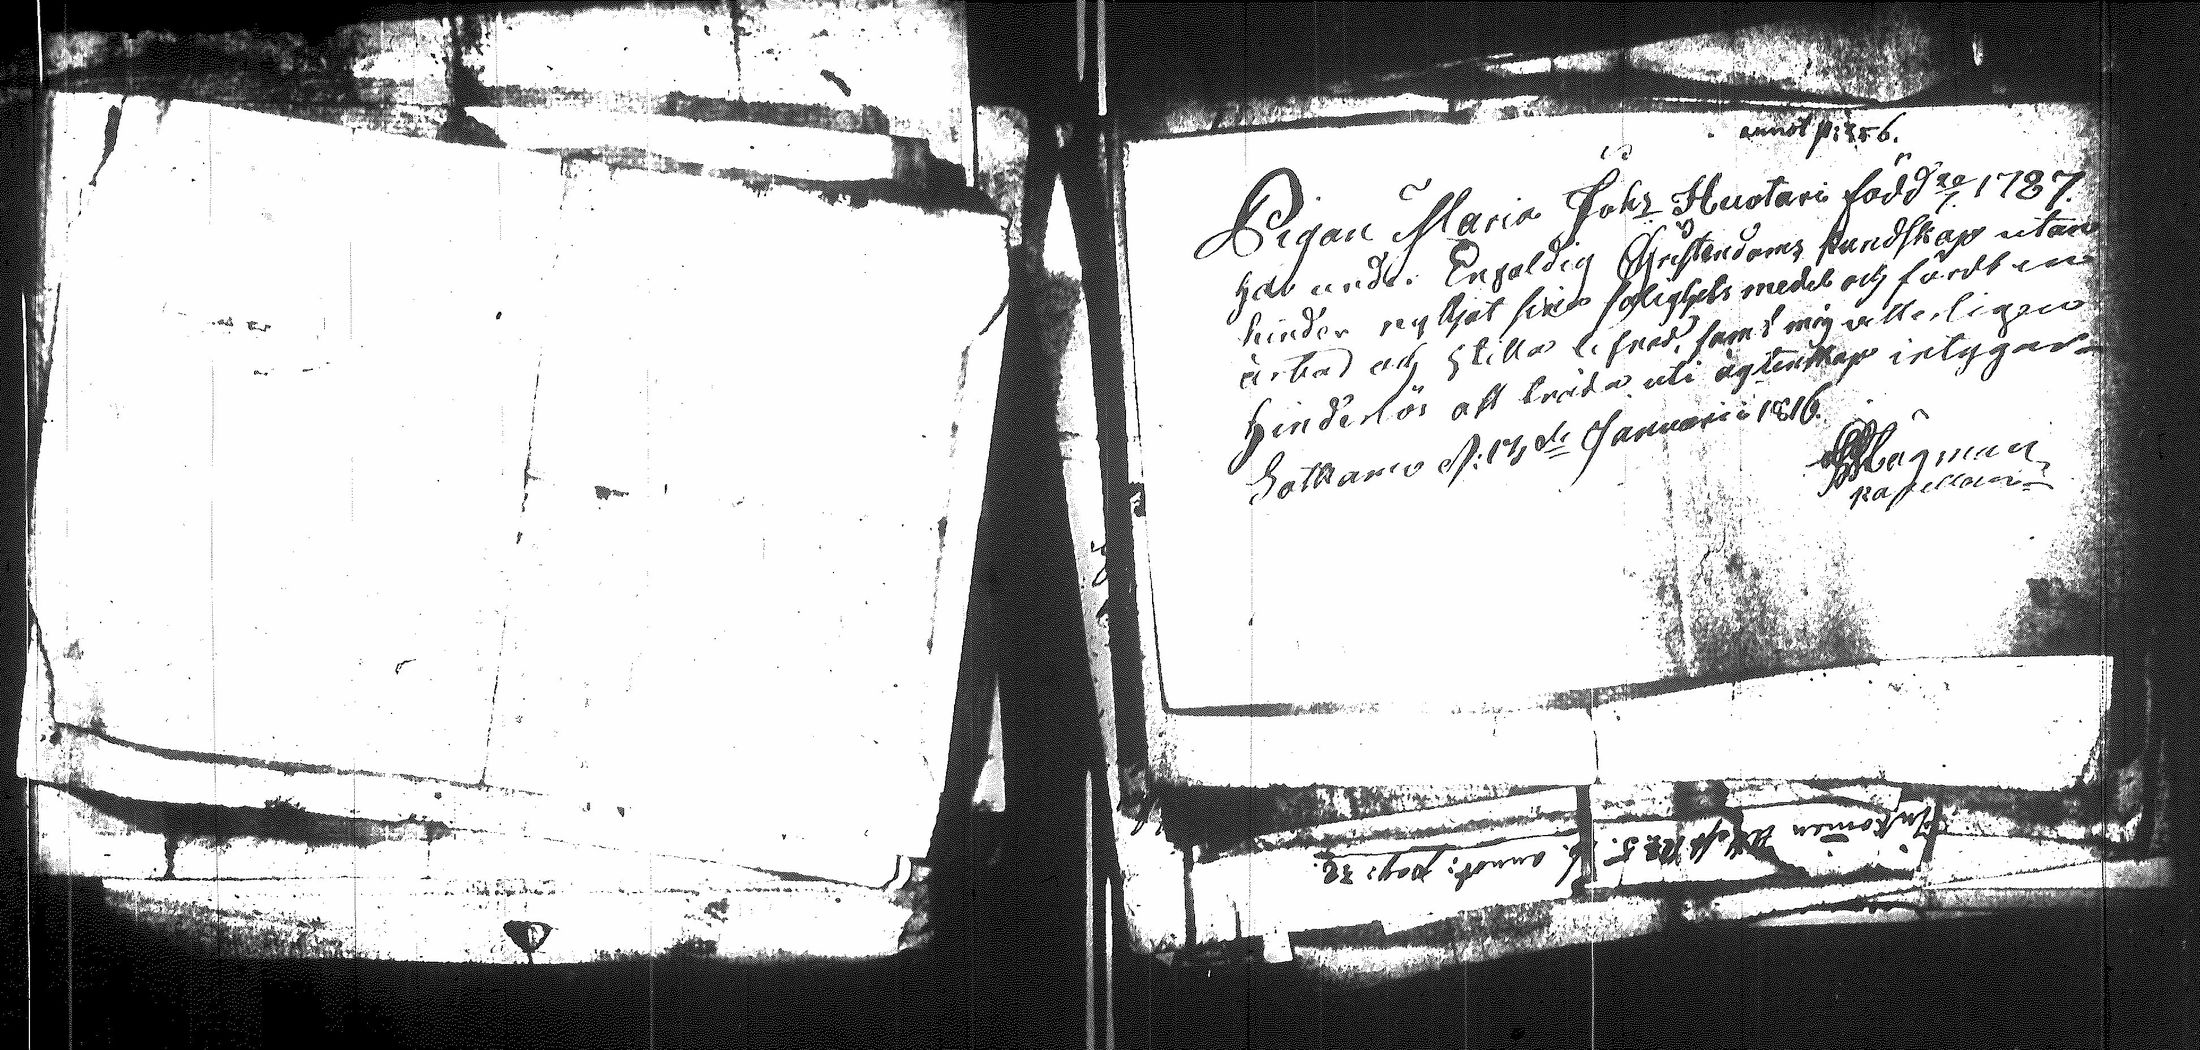 annot p: 256.
Pigan Maria Johs Huotari född 20/7 1787.
har under Enfaldig Christendoms kundskap utan
hinder nyttjat sina salighets medel och fördt en
ärbar och stilla lefnad, som mig vitterligen
hinderlös att träda uti ägtenskap intygar
Sotkamo d: 13de Januarii 1816.
Hågman
kapellan
Inkomen
annot: pag: 32